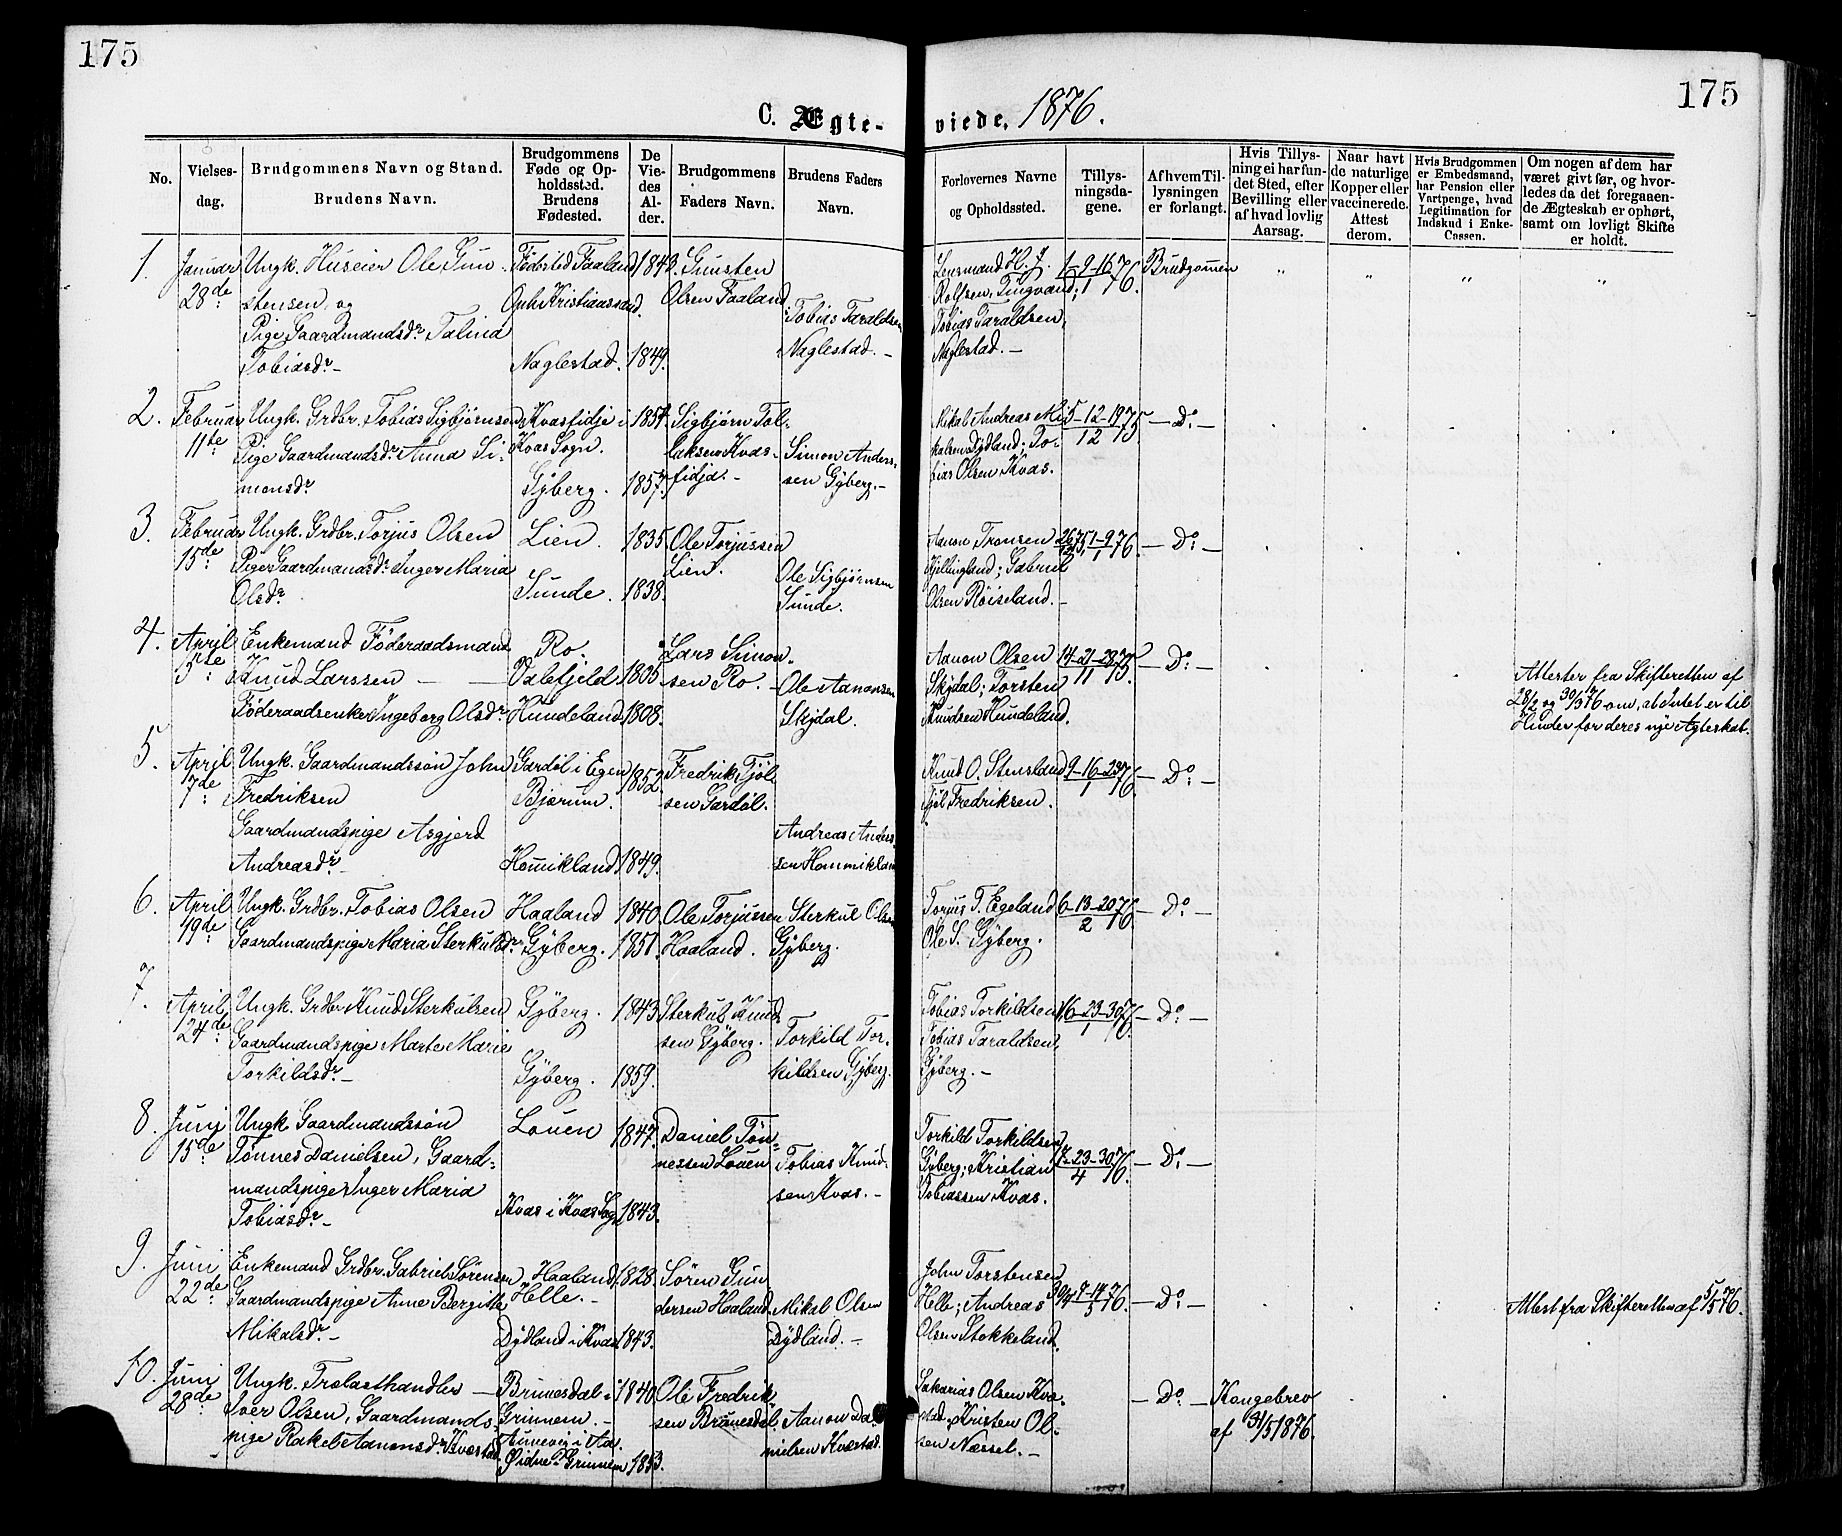 175
175
C. Ægte-
viede. 1876.
No.
Vielses-
dag.
Brudgommens Navn og Stand.
Brudens Navn.
Brudgommens
Føde og Op-
holdssted.
Brudens
Fødested.
De
Vie-
des
Al-
der.
Brudgommens
Faders Navn.
Brudens Faders
Navn.
Forlovernes Navne
og Opholdssted.
Tillys-
ningsda-
gene.
Af hvem Til-
lysningen
er forlangt.
Hvis Tillys-
ning ei har fun-
det Sted, efter
Bevilling eller
af hvad lovlig
Aarsag.
Naar havt
de naturlige
Kopper eller
vaccinerede.
Attest
derom.
Hvis Brudgommen
er Embedsmand,
har Pension eller
Vartpenge, hvad
Legitimation for
Indskud i Enke-
Cassen.
Om nogen af dem har
været givt før, og hvor-
ledes da det foregaaen-
de Ægteskab er ophørt,
samt om lovligt Skifte
er holdt.
1.
Januar
28de
Ungk. Huseier Ole Gun
stensen, og
Pige Gaardmandsdr. Talina
Tobiasdr. –
Fødested Faaland
Oph. Kristianssand.
Naglestad.
1842.
1849.
Gunsten
Olsen Faaland
Tobias Taraldsen
Naglestad. –
Lensmand H. J.
Rolfsen, Tingvand;
Tobias Taraldsen,
Naglestad. –
1–9–16/1 76.
Brudgommen
"
"
"
"
2.
Februar
11te
Ungk. Grdbr. Tobias Sigbjørnsen
Pige Gaardmandsdr. Anna Si-
monsdr.
Kvasfidje i
Kvas Sogn.
Gyberg.
1854.
1857.
Sigbjørn Tol-
laksen Kvas-
fidja. –
Simon Anders-
sen Gyberg. –
Mikal Andreas Mi-
kalsen Dydland; To-
bias Olsen Kvas.
5–12–19/12 75
– Do: –
3.
Februar
15de
Ungk. Grdbr. Torjus Olsen
Pige Gaardmandsdr. Inger Maria
Olsdr.
Lien.
Sunde.
1835.
1838.
Ole Torjussen
Lien.
Ole Sigbjørnsen
Sunde.
Aanon Tronsen
Kjellingland; Gabriel
Olsen Røiseland. –
26/12 75, 1–9/1 76.
– Do: –
4.
April
5te
Enkemand Føderaadsmand
Knud Larssen –
Føderaadsenke Ingeborg Olsdr.
Ro.
Valefjeld
Hundeland
1805
1808.
Lars Simon-
sen Ro. –
Ole Aanonsen
Skjdal.
Aanon Olsen
Skjdal; Torsten
Knudsen Hundeland.
14–21–28/11 75.
– Do: –
Attester fra Skifteretten af
28/2 og 30/3 76 om, at Intet er til
Hinder for deres nye Ægteskab.
5.
April
7de
Ungk. Gaardmandssøn John
Fredriksen
Gaardmandspige Asgjerd
Andreasdr. –
Gardøl i Egen
Bjærum.
Homikland
1852.
1849.
Fredrik Tjøl
sen Gardøl.
Andreas Anders-
sen Hommikland
Knud O. Stensland
Tjøl Fredriksen.
9–16–23/1 76
– Do: –
6.
April
19de
Ungk. Grdbr. Tobias Olsen
Gaardmandspige Maria Sterkulsdr.
Haaland
Gyberg.
1840.
1851.
Ole Torjussen
Haaland.
Sterkul Olsen
Gyberg.
Torjus T. Egeland
Ole S. Gyberg.
6–13–20/2 76.
– Do: –
7.
April
24de
Ungk. Grdbr. Knud Sterkulsen
Gaardmandspige Marte Marie
Torkildsdr. –
Gyberg.
Gyberg.
1843
1859.
Sterkul Knud
sen Gyberg.
Torkild Tor-
kildsen Gyberg.
Tobias Torkildsen
Tobias Taraldsen,
Gyberg. –
16–23–30/1 76.
– Do: –
8.
Juni
15de
Ungk. Gaardmandssøn
Tønnes Danielsen, Gaard-
mandspige Inger Maria
Tobiasdr. –
Louen
Kvas i Kvas Sogn
1847.
1843.
Daniel Tøn-
nessen Louen
Tobias Knud-
sen Kvas. –
Torkild Torkildsen
Gyberg; Kristian
Tobiassen Kvas.
– Do: –
9.
Juni
22de
Enkemand Grdbr. Gabriel Sørensen
Gaardmandspige Anne Bergitte
Mikalsdr. –
Haaland,
Helle. –
Dydland i Kvas
1828.
1843.
Søren Gun
dersen Haaland
Mikal Olsen
Dydland. –
John Torstensen
Helle; Andreas
Olsen Stokkeland.
30/4 7–14/5 76.
– Do: –
Attest fra Skifteretten af 5/5 76.
10.
Juni
28de
Ungk. Trelasthandler –
Iver Olsen, Gaardmands-
pige Rakel Aanonsdr. Kvastad
Brunesdal i
Grinnem. –
Øidne Grinnem
1840.
1853.
Ole Fredrik-
sen Brunesdal.
Aanon Da-
nielsen Kvastad.
Sakarias Olsen Kva-
stad, Kristen Ol-
sen Næssel. –
– Do: –
Kongebrev
af 31/5 1876.